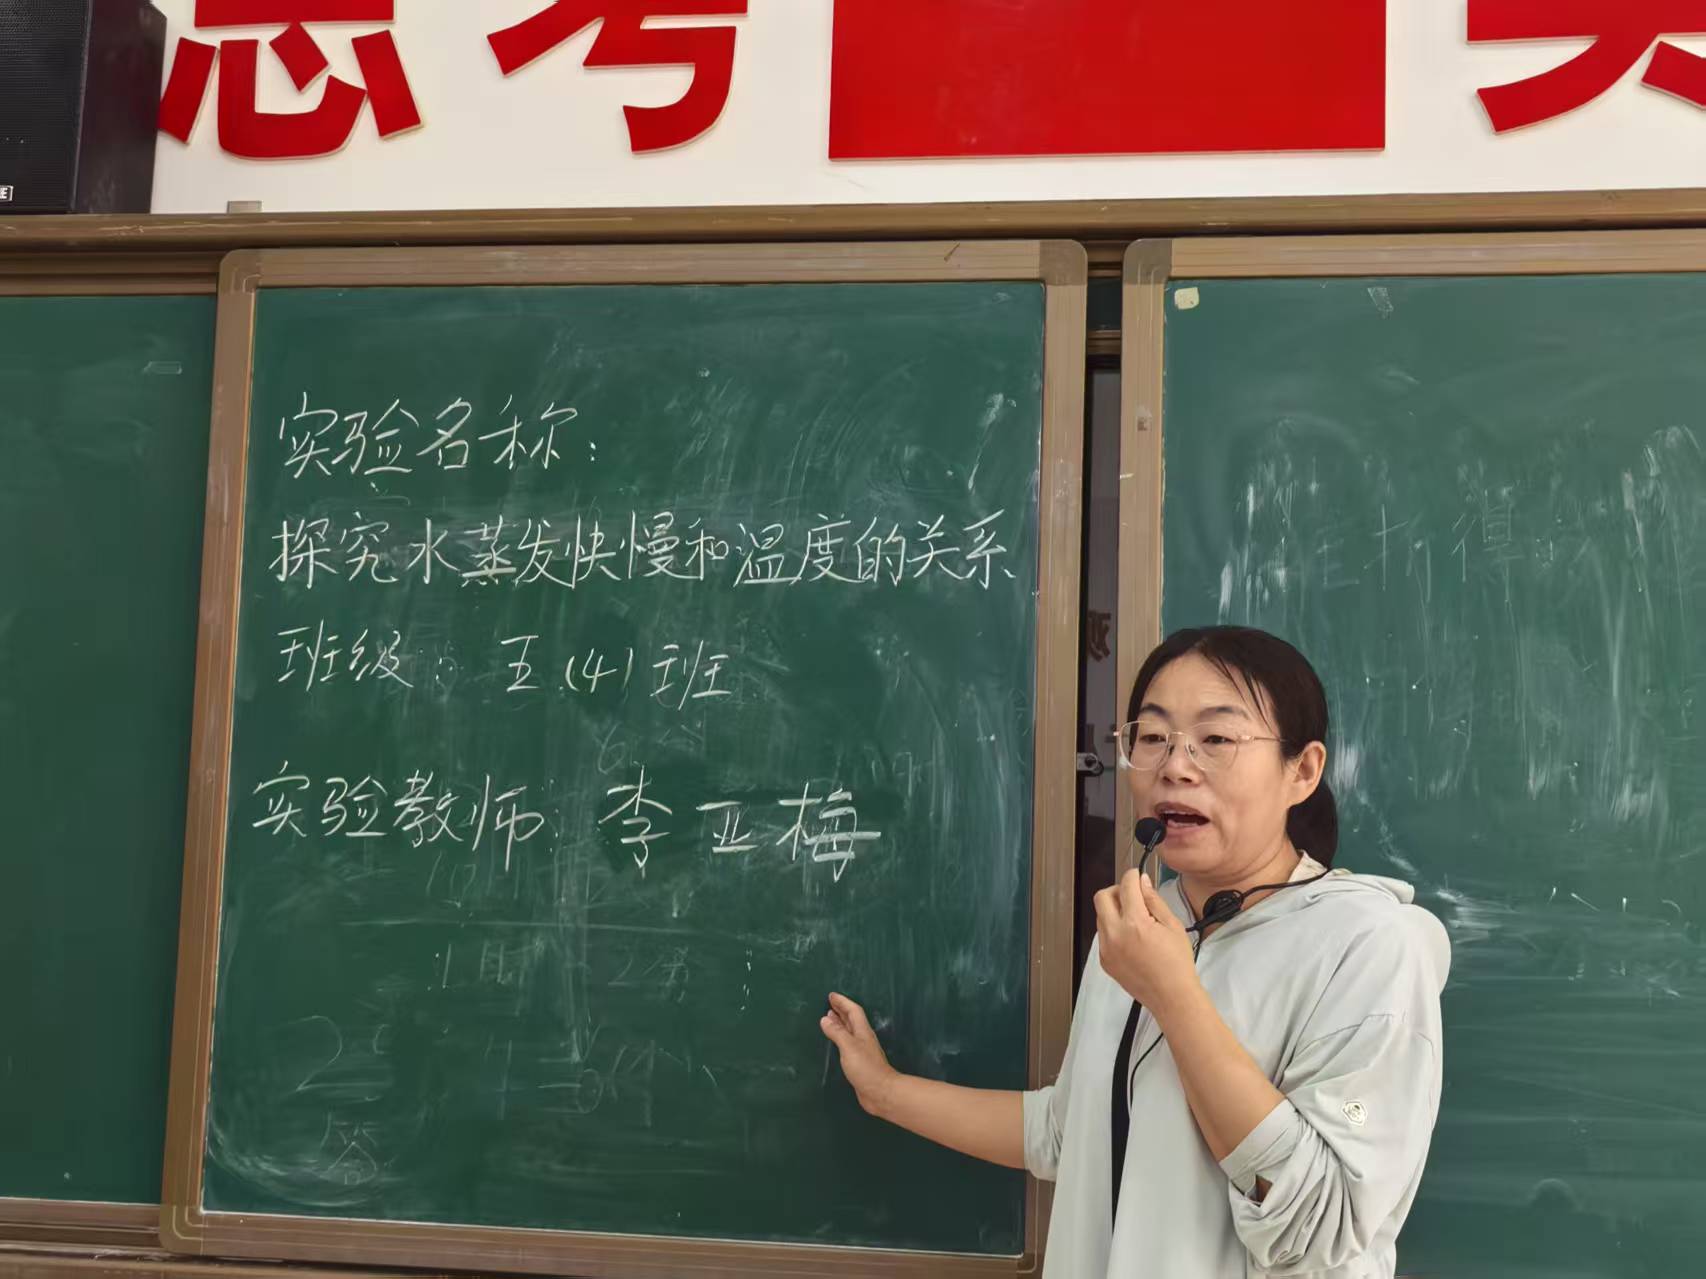 思考
实验名称：
探究水蒸发快慢和温度的关系
班级：五(4)班
实验教师：李亚梅